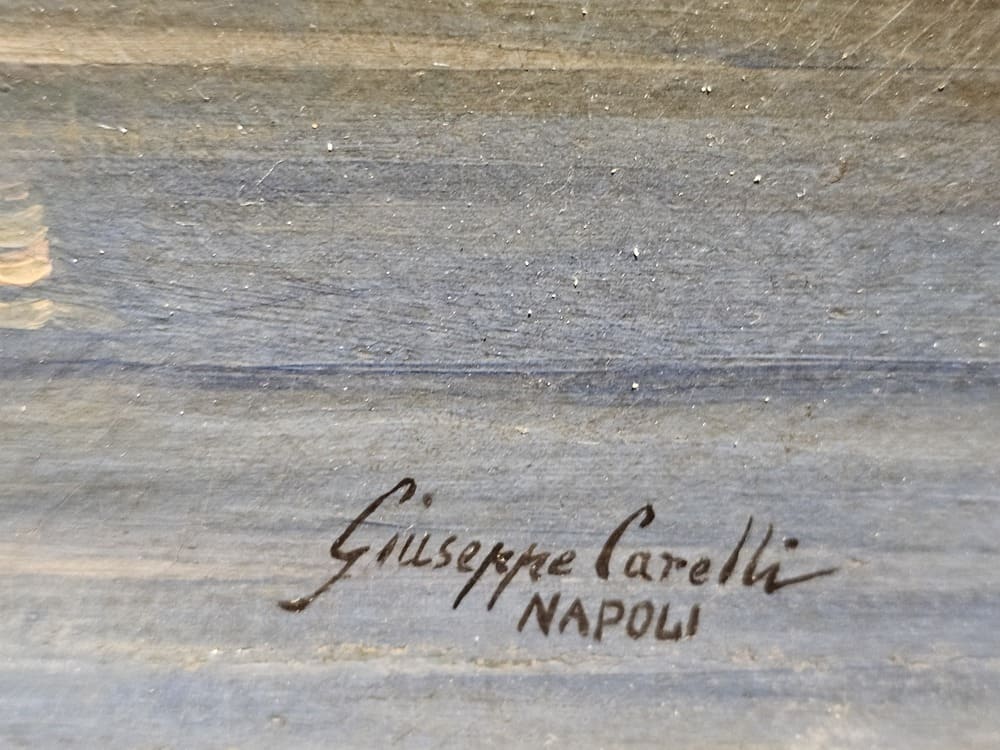 Giuseppe Carelli
NAPOLI